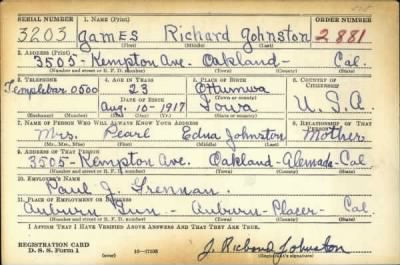 SERIAL NUMBER 1. NAME (Print) ORDER NUMBER
3203 James Richard Johnston 2881
(First) (Middle) (Last)
2. ADDRESS (Print)
3505 - Kempton Ave. Oakland - Cal.
(Number and street or R. F. D. number) (Town) (County) (State)
3. TELEPHONE 4. AGE IN YEARS 5. PLACE OF BIRTH 6. COUNTRY OF CITIZENSHIP
Templebar 0500 23 Ottumwa
DATE OF BIRTH (Town or county)
Aug. 10 - 1917 Iowa U.S.A
(Exchange) (Number) (Mo.) (Day) (Yr.) (State or country)
7. NAME OF PERSON WHO WILL ALWAYS KNOW YOUR ADDRESS 8. RELATIONSHIP OF THAT PERSON
Mrs. Pearl Edna Johnston Mother
(Mr., Mrs., Miss) (First) (Middle) (Last)
9. ADDRESS OF THAT PERSON
3505 - Kempton Ave. Oakland - Alemada - Cal
(Number and street or R. F. D. number) (Town) (County) (State)
10. EMPLOYER'S NAME
Paul J.
11. PLACE OF EMPLOYMENT OR BUSINESS
Auburn - Auburn - Placer - Cal
(Number and street or R. F. D. number) (Town) (County) (State)
I AFFIRM THAT I HAVE VERIFIED ABOVE ANSWERS AND THAT THEY ARE TRUE.
REGISTRATION CARD
D. S. S. Form 1 (over) J. Richard Johnston
(Registrant's signature)